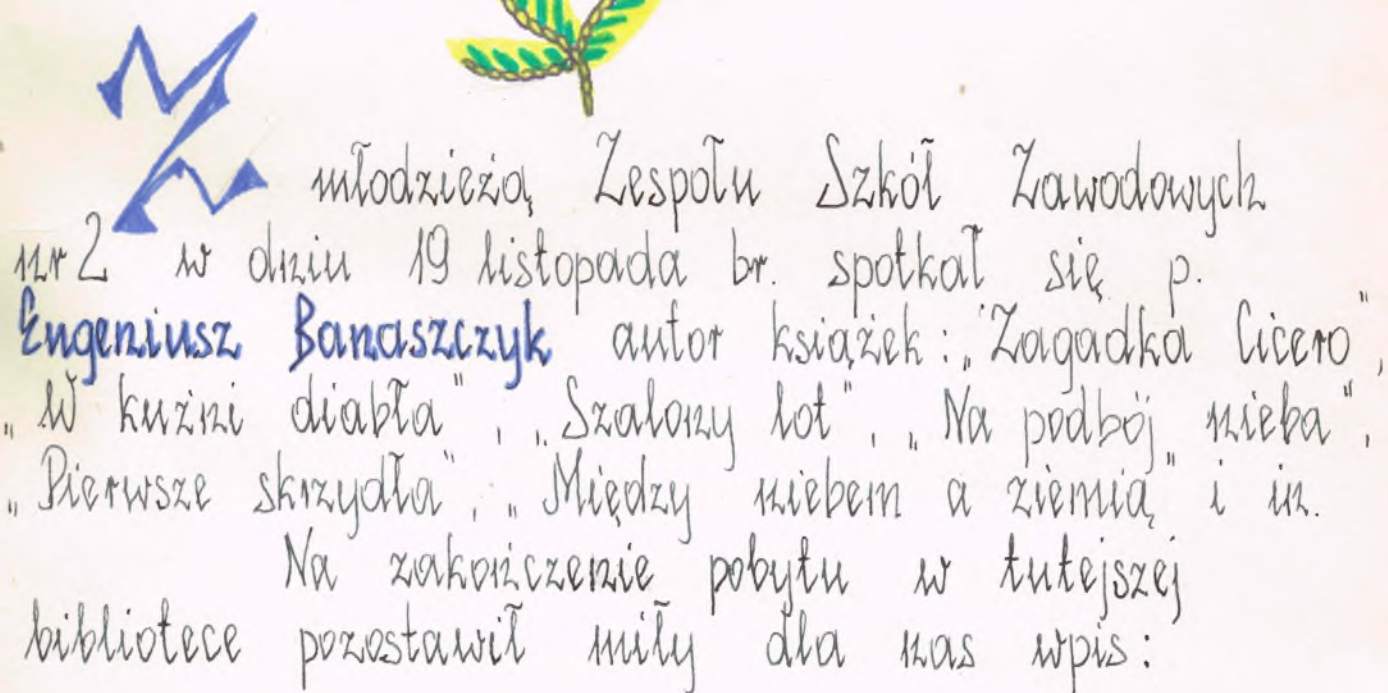 Z młodzieżą Zespołu Szkół Zawodowych
nr 2 w dniu 19 listopada br. spotkał się p.
Eugeniusz Banaszczyk autor książek: „Zagadka Cicero",
„W kuźni diabła", „Szalony lot", „Na podbój nieba",
„Pierwsze skrzydła", „Między niebem a ziemią" i in.
Na zakończenie pobytu w tutejszej
bibliotece pozostawił miły dla nas wpis: